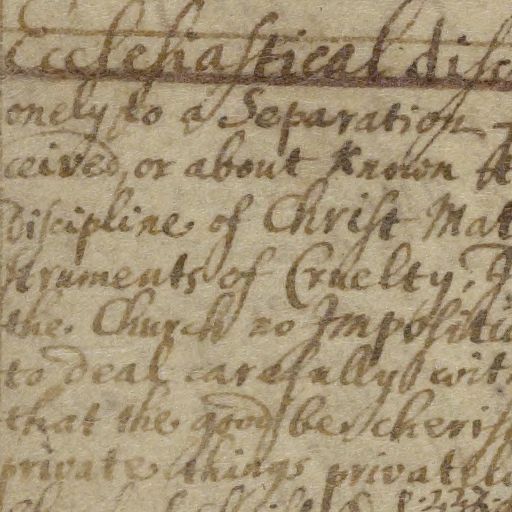 Ecclesiastical disc
onely to a Separation
ceived, or about known
Discipline of Christ Mat
struments of Cruelty,
the Church no Impositio
to deal carefully with
that the good be cheris
private things privatel